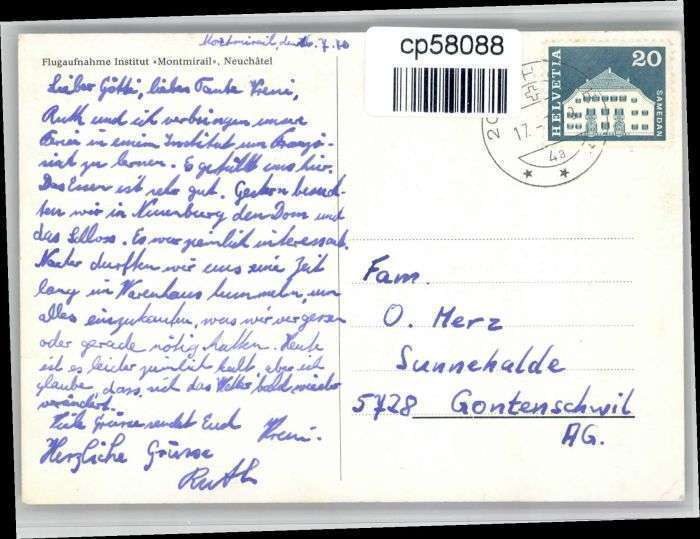 Montmirail, den 16. 7. 70
Flugaufnahme Institut «Montmirail», Neuchâtel
Lieber Götti, liebes Tante Vreni,
Ruth und ich verbringen unsere
Ferien in einem Institut um Franzö-
sisch zu lernen. Es gefällt uns hier.
Das Essen ist sehr gut. Gestern besuch-
ten wir in Neuenburg den Dom und
das Schloss. Es war ziemlich interessant.
Nachher durften wir uns eine Zeit
lang in Warenhaus tummeln, um
alles einzukaufen, was wir vergessen
oder gerade nötig hatten. Heute
ist es leider ziemlich kalt, aber ich
glaube, dass sich das Wetter bald wieder
verändert.
Viele Grüsse sendet Euch
Vreni.
Herzliche Grüsse
Ruth
cp58088
HELVETIA
20
SAMEDAN
17.
4a
Fam.
O. Merz
Sunnehalde
5728 Gontenschwil
AG.